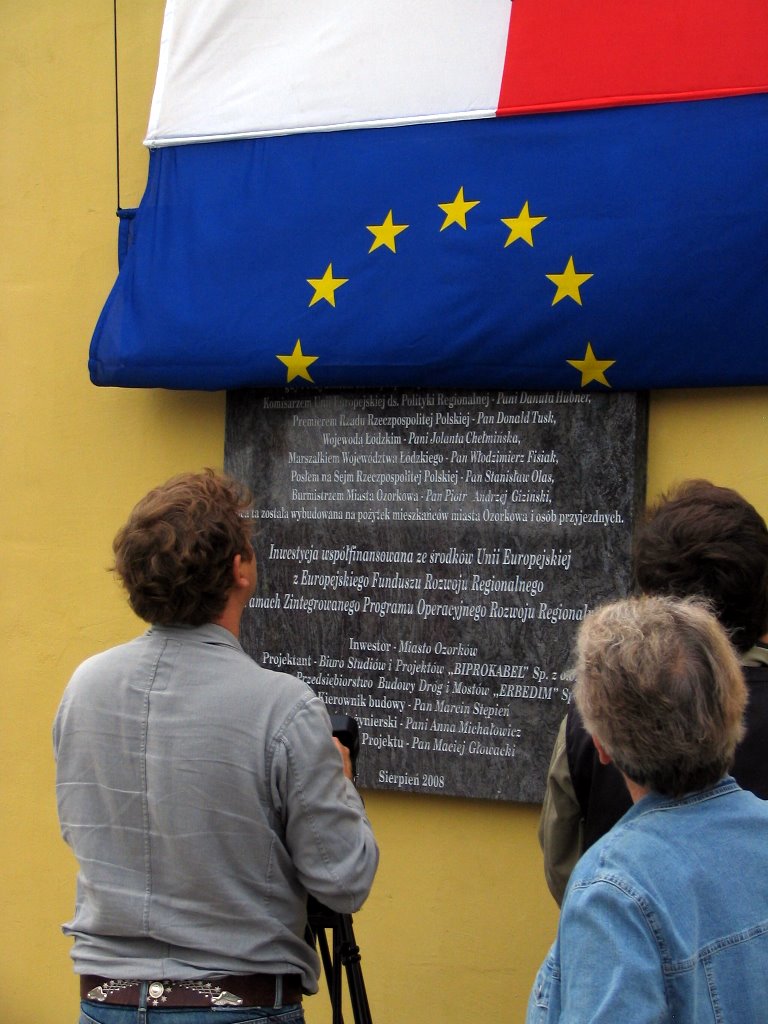 Komisarzem Unii Europejskiej ds. Polityki Regionalnej - Pani Danuta Hübner,
Premierem Rządu Rzeczpospolitej Polskiej - Pan Donald Tusk,
Wojewodą Łódzkim - Pani Jolanta Chełmińska,
Marszałkiem Województwa Łódzkiego - Pan Włodzimierz Fisiak,
Posłem na Sejm Rzeczpospolitej Polskiej - Pan Stanisław Olas,
Burmistrzem Miasta Ozorkowa - Pan Piotr Andrzej Giziński,
ta została wybudowana na pożytek mieszkańców miasta Ozorkowa i osób przyjezdnych.
Inwestycja współfinansowana ze środków Unii Europejskiej
z Europejskiego Funduszu Rozwoju Regionalnego
amach Zintegrowanego Programu Operacyjnego Rozwoju Regionaln
Inwestor - Miasto Ozorków
Projektant - Biuro Studiów i Projektów „BIPROKABEL" Sp. z o
Przedsiębiorstwo Budowy Dróg i Mostów „ERBEDIM" Sp
Kierownik budowy - Pan Marcin Stępień
żynierski - Pani Anna Michałowicz
Projektu - Pan Maciej Głowacki
Sierpień 2008